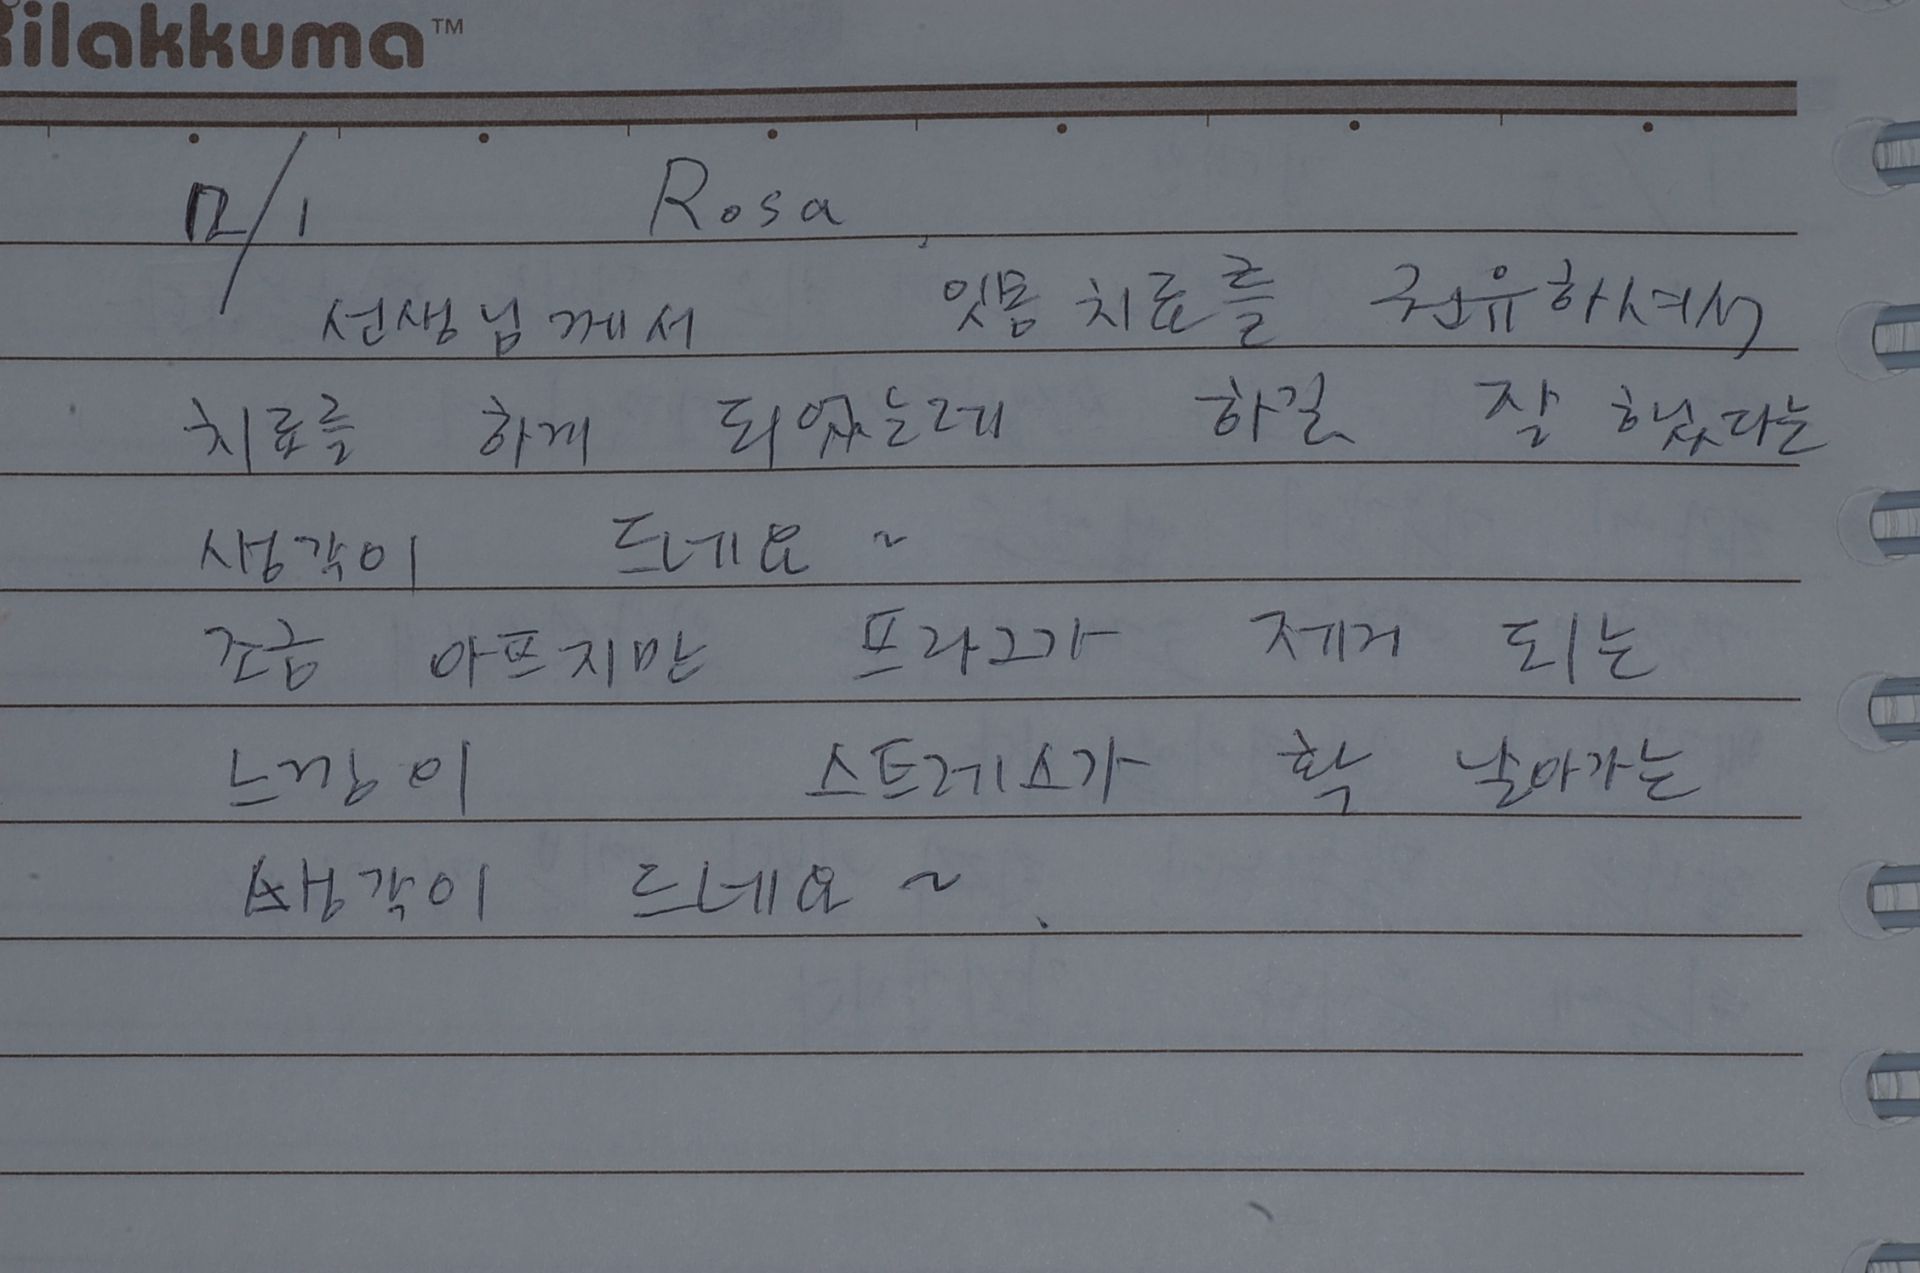 Rilakkuma™
12/1 Rosa
선생님께서 잇몸 치료를 권유하셔서
치료를 하게 되었는데 하길 잘 했다는
생각이 드네요~
조금 아프지만 프라그가 제거 되는
느낌이 스트레스가 확 날아가는
생각이 드네요~.